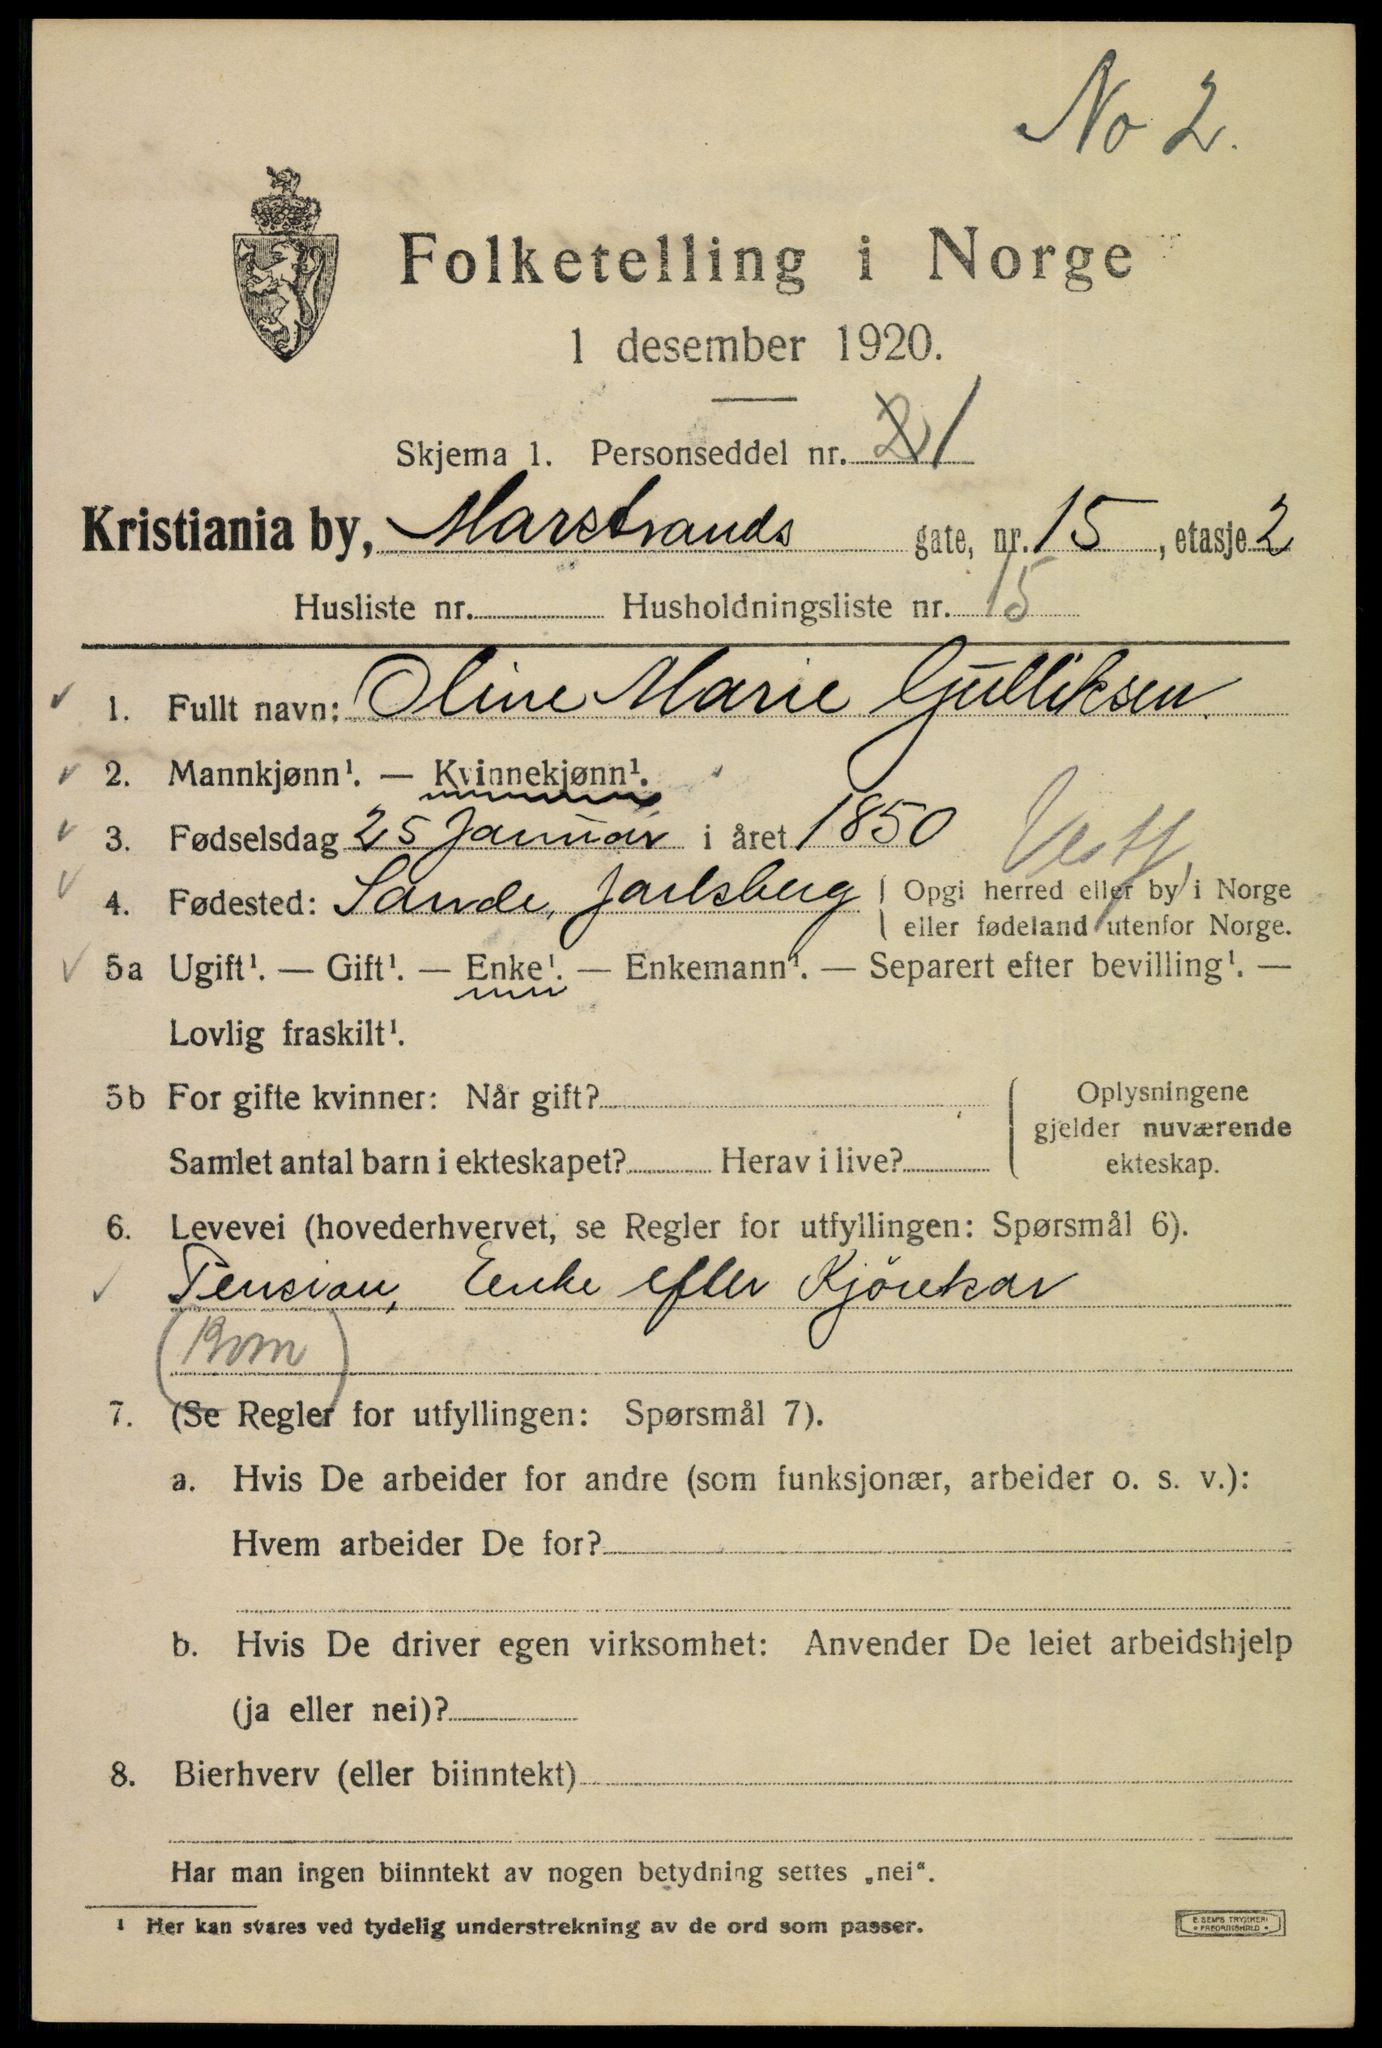 No 2.
Folketelling i Norge
1 desember 1920.
Skjema 1. Personseddel nr. 2 1
Kristiania by, Marstrands gate, nr. 15, etasje 2
Husliste nr. Husholdningsliste nr. 15
1. Fullt navn: Oline Marie Gulliksen.
2. Mannkjønn¹. — Kvinnekjønn¹.
3. Fødselsdag 25 Januar i året 1850
Vestf.
4. Fødested: Sande, Jarlsberg Opgi herred eller by i Norge
eller fødeland utenfor Norge.
5a Ugift¹. — Gift¹. — Enke¹. — Enkemann¹. — Separert efter bevilling¹. —
Lovlig fraskilt¹.
5b For gifte kvinner: Når gift? Oplysningene
gjelder nuværende
Samlet antal barn i ekteskapet? Herav i live? ekteskap.
6. Levevei (hovederhvervet, se Regler for utfyllingen: Spørsmål 6).
Pension, Enke efter Kjörekar
7. (Se Regler for utfyllingen: Spørsmål 7).
a. Hvis De arbeider for andre (som funksjonær, arbeider o. s. v.):
Hvem arbeider De for?
b. Hvis De driver egen virksomhet: Anvender De leiet arbeidshjelp
(ja eller nei)?
8. Bierhverv (eller biinntekt)
Har man ingen biinntekt av nogen betydning settes „nei“.
¹ Her kan svares ved tydelig understrekning av de ord som passer.
E. SEM'S TRYKKERI
FREDRIKSHALD